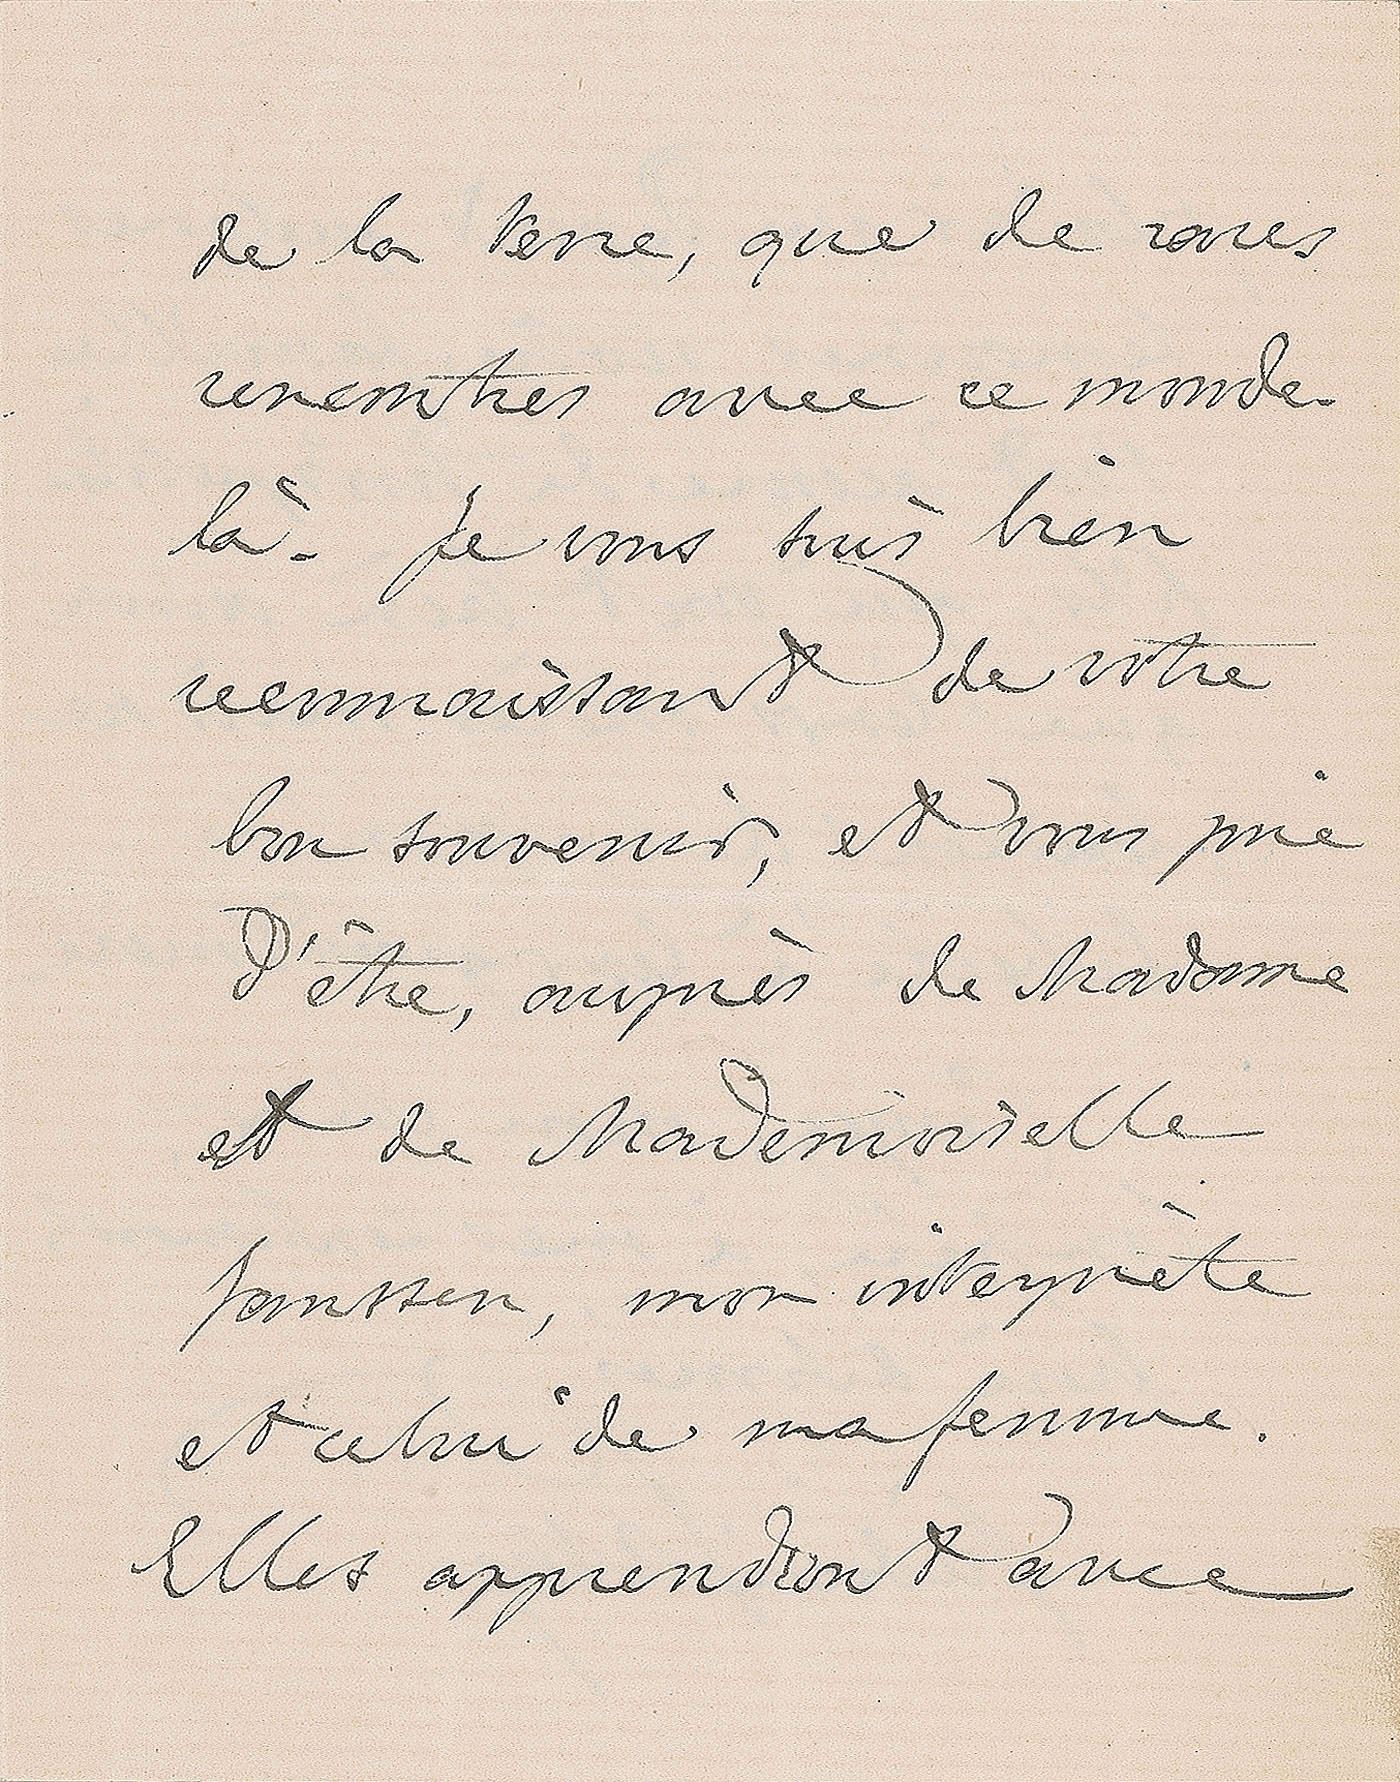 de la Terre, que de rares
rencontres avec ce monde-
là. Je vous suis bien
reconnaissant de votre
bon souvenir, et vous prie
d'être, auprès de Madame
et de Mademoiselle
Janssen, mon interprète
et celui de ma femme.
Elles apprendront avec